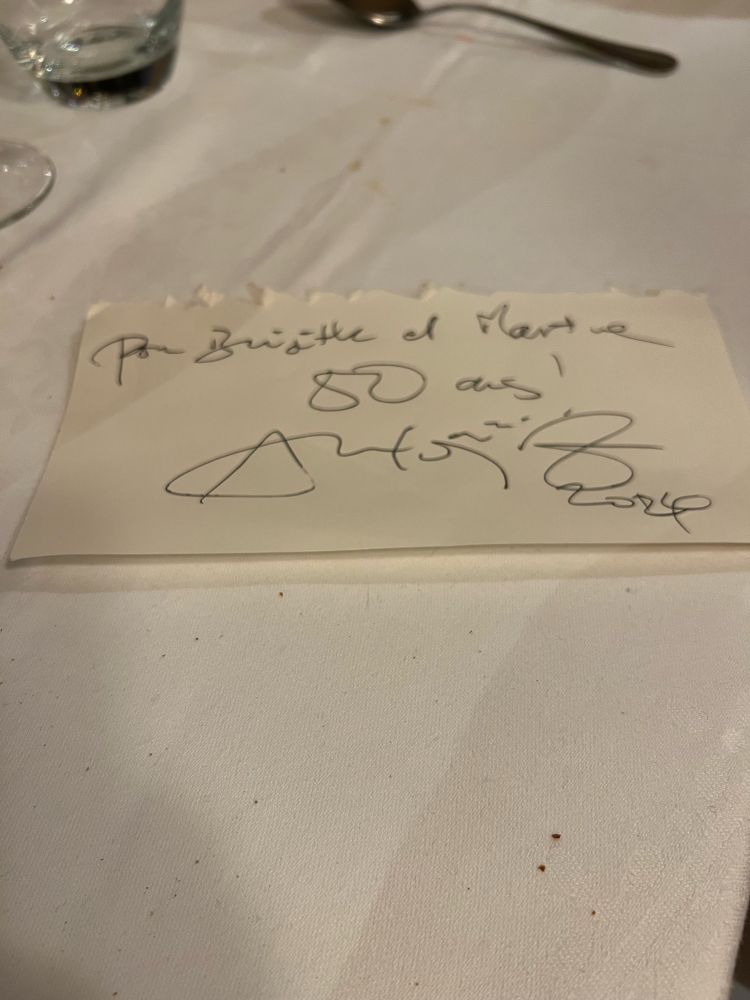 Pour Brigitte et Martine
50 ans!
2024